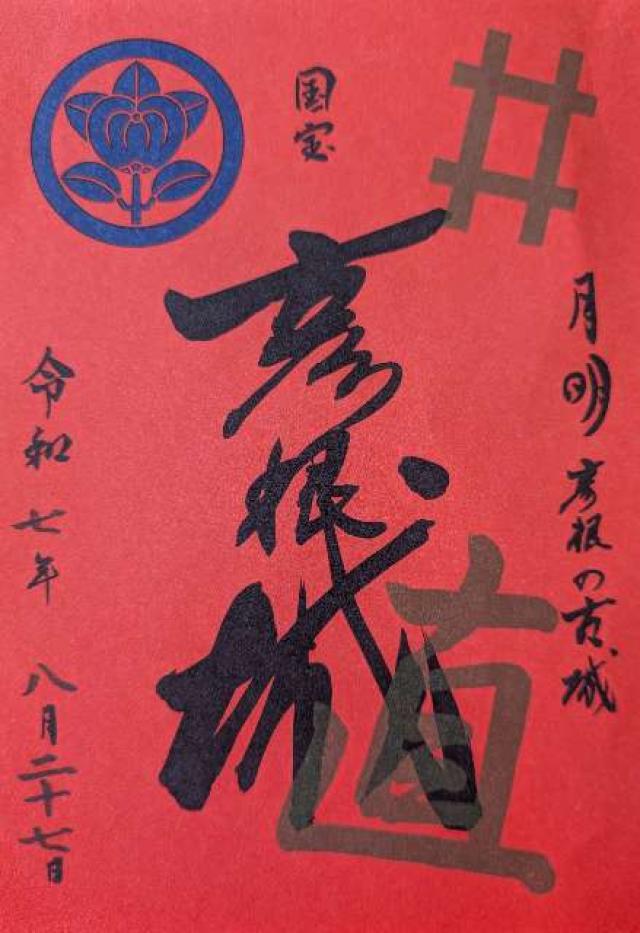 井
国宝
月明彦根の古城
彦根城
直
令和七年八月二十七日